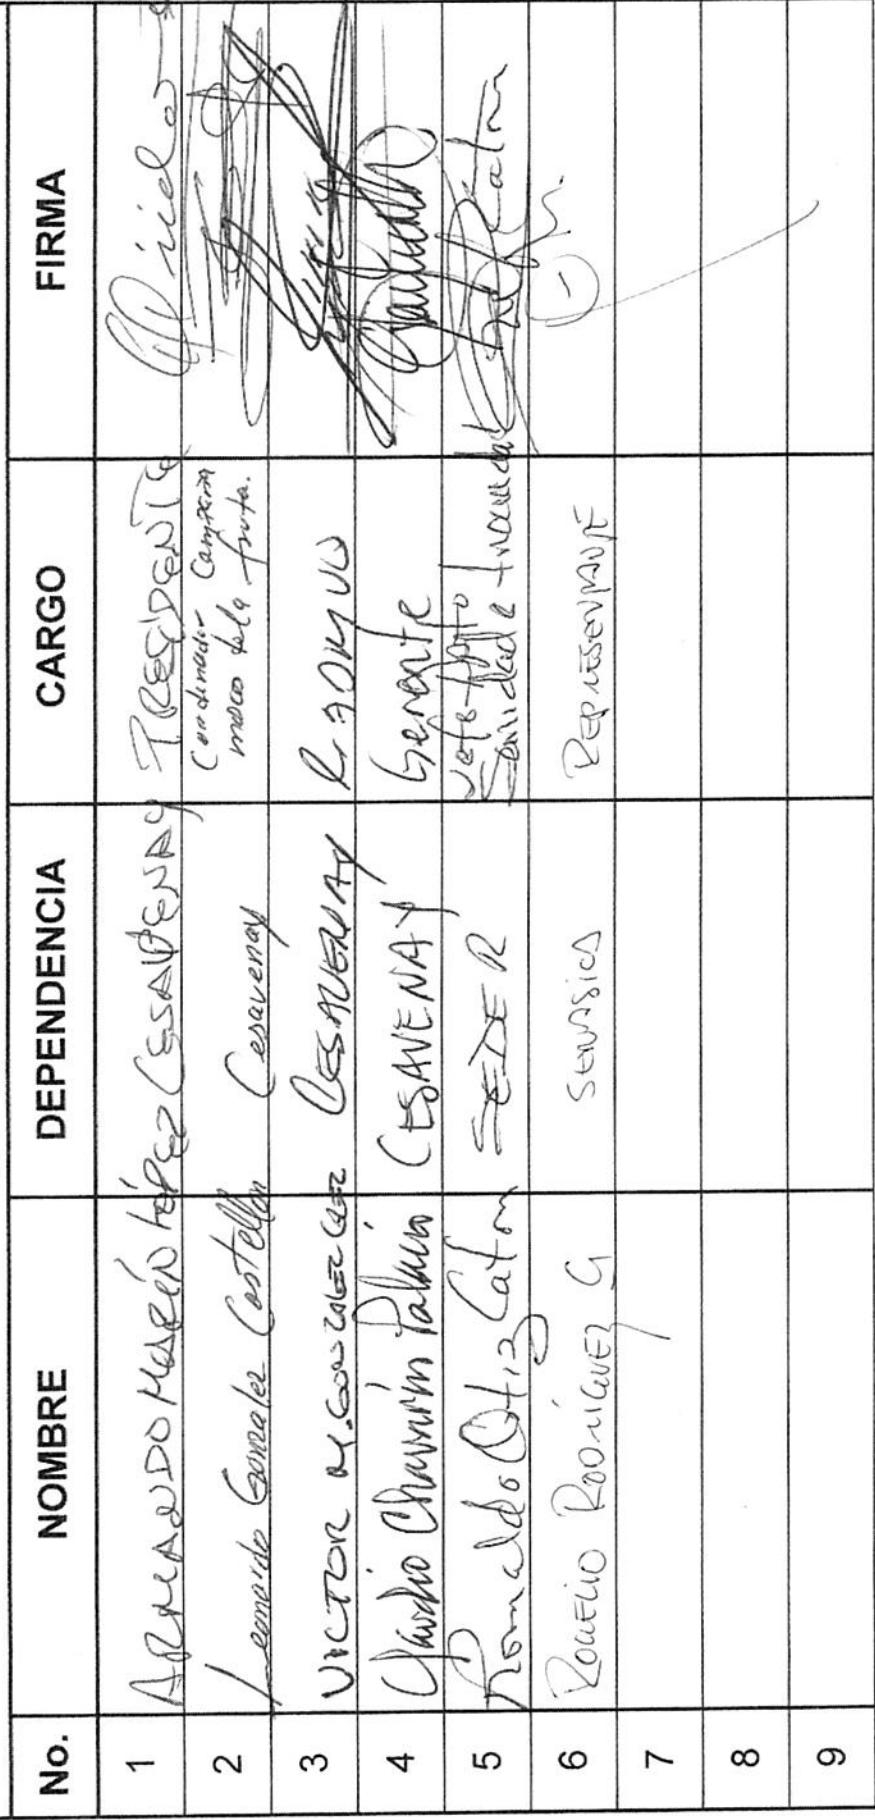 No. NOMBRE DEPENDENCIA CARGO FIRMA
1 ARMANDO MARÍN LÓPEZ CESAVENAY PRESIDENTE
2 Leonardo Gonzalez Castellón Cesavenay Coordinador Campaña
mosca de la fruta.
3 VICTOR M. GONZALEZ CESAVENAY
4 Claudio Chavarín Palacio CESAVENAY Gerente
5 Romaldo Ortiz Caton SEDER Jefe Depto
Sanidad e Inocuidad
6 ROGELIO RODRÍGUEZ G SENASICA REPRESENTANTE
7
8
9